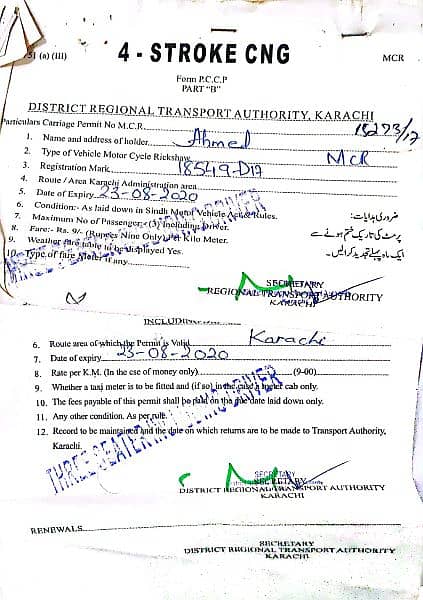 751 (a) (III)
4 - STROKE CNG
MCR
Form P.C.C.P
PART "B"
DISTRICT REGIONAL TRANSPORT AUTHORITY, KARACHI
Particulars Carriage Permit No M.C.R. 18273/17
1. Name and address of holder Ahmed
2. Type of Vehicle Motor Cycle Rickshaw MCR
3. Registration Mark 18549-D17
4. Route / Area Karachi Administration area
5. Date of Expiry 23-08-2020
6. Condition:- As laid down in Sindh Motor Vehicle Act & Rules.
7. Maximum No of Passenger:- (3) Including Driver.
8. Fare:- Rs. 9/- (Rupees Nine Only) Kilo Meter.
9. Weather fare table to be displayed Yes.
10. Type of fare Meter if any
THREE SEATER INCLUDING DRIVER
ضروری ہدایات:
پرمٹ کی تاریخ ختم ہونے سے
ایک ماہ پہلے تجدید کرائیں۔
SECRETARY
REGIONAL TRANSPORT AUTHORITY
KARACHI
INCLUDING
6. Route area of which the Permit is Valid Karachi
7. Date of expiry 23-08-2020
8. Rate per K.M. (In the cse of money only) (9-00)
9. Whether a taxi meter is to be fitted and (if so) in the case meter cab only.
10. The fees payable of this permit shall be paid on the due date laid down only.
11. Any other condition. As per rule.
12. Record to be maintained and the date on which returns are to be made to Transport Authority,
Karachi.
THREE SEATER INCLUDING DRIVER
SECRETARY
SECRETARY
DISTRICT REGIONAL TRANSPORT AUTHORITY
KARACHI
RENEWALS
SECRETARY
DISTRICT REGIONAL TRANSPORT AUTHORITY
KARACHI